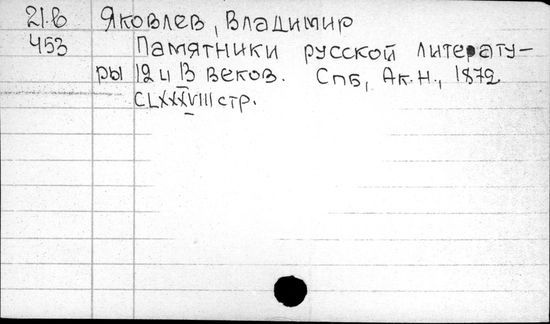 21.в Яковлев, Владимир
453 Памятники русской литерату-
ры 12 и 13 веков. СПб, Ак.Н., 1872
CLXXXVIII стр.